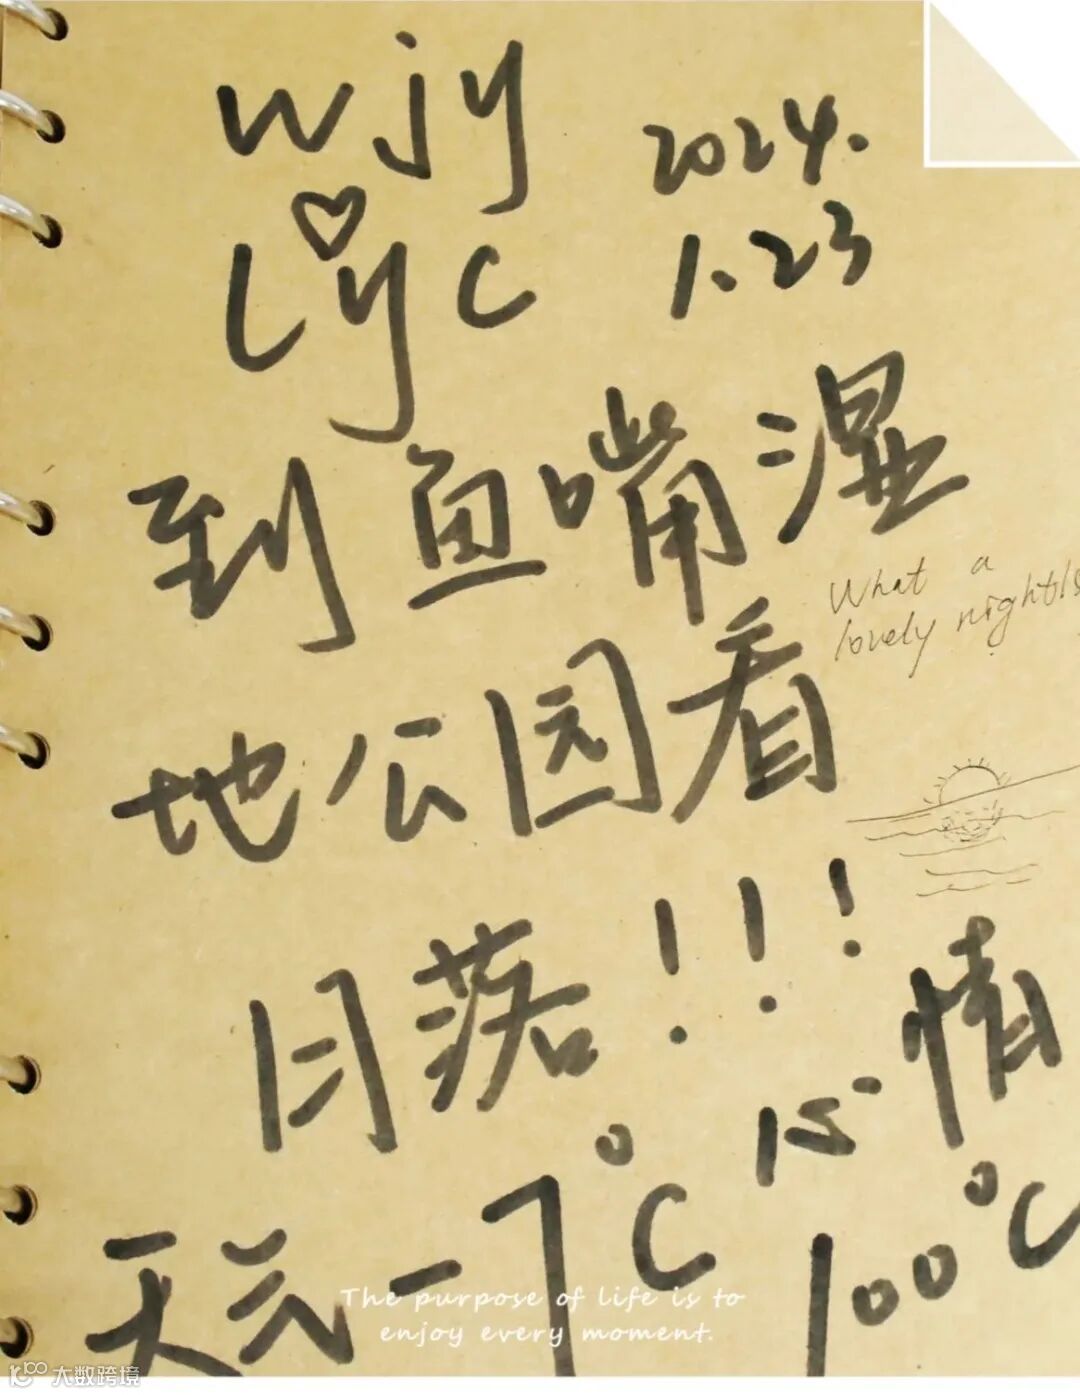 wjy
2024.
♡
1.23
lyc
到鱼嘴湿
What a
lovely night!
地公园看
日落!!!
心情
天气-7°C
100°C
The purpose of life is to
enjoy every moment.
大数跨境